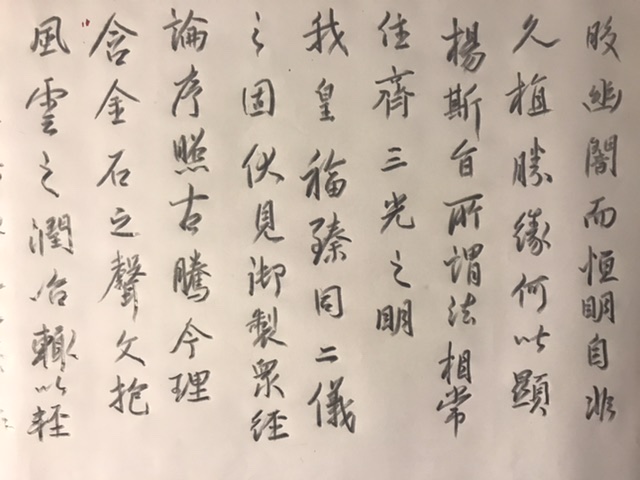 皎幽闇而恒明自非
久植勝緣何以顯
楊斯旨所謂法相常
住齊三光之明
我皇福臻同二儀
之固伏見御製眾經
論序照古騰今理
含金石之聲文抱
風雲之潤治輒以輕